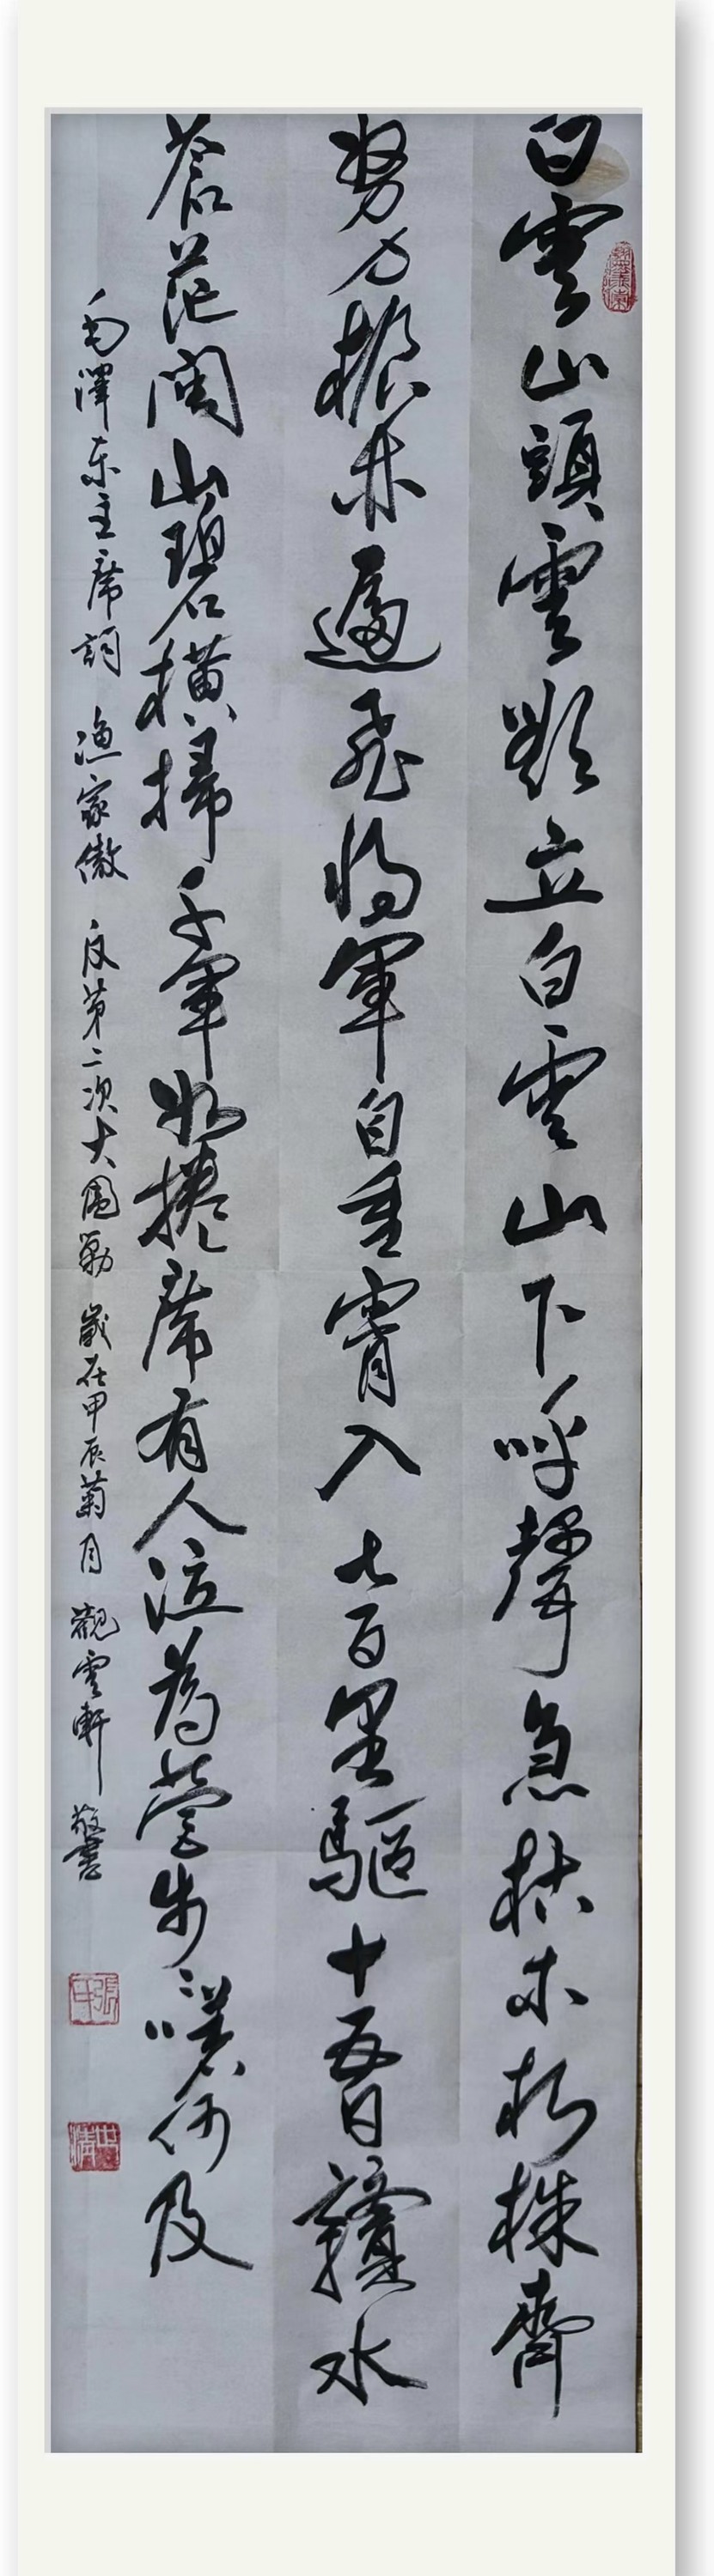 白雲山頭雲欲立白雲山下呼聲急枯木朽株齊
努力槍林逼飛將軍自重霄入七百里驅十五日贛水
蒼茫閩山碧橫掃千軍如捲席有人泣為營步〻嗟何及
毛澤东主席詞 漁家傲 反第二次大圍剿 歲在甲辰菊月 觀雲軒 敬書
張印